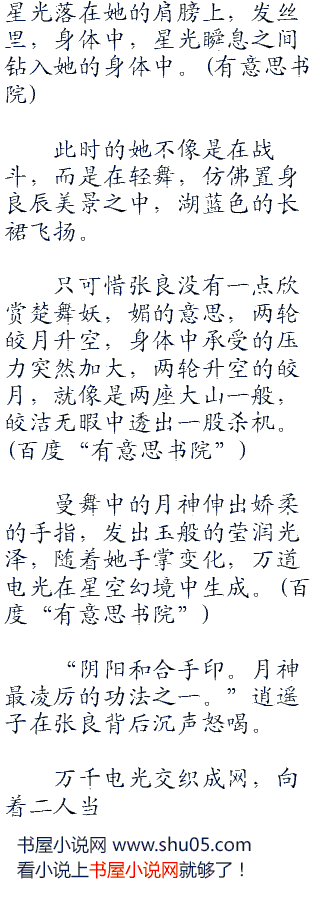 星光落在她的肩膀上，发丝
里，身体中，星光瞬息之间
钻入她的身体中。(有意思书
院)
此时的她不像是在战
斗，而是在轻舞，仿佛置身
良辰美景之中，湖蓝色的长
裙飞扬。
只可惜张良没有一点欣
赏楚舞妖，媚的意思，两轮
皎月升空，身体中承受的压
力突然加大，两轮升空的皎
月，就像是两座大山一般，
皎洁无暇中透出一股杀机。
(百度“有意思书院”)
曼舞中的月神伸出娇柔
的手指，发出玉般的莹润光
泽，随着她手掌变化，万道
电光在星空幻境中生成。(百
度“有意思书院”)
“阴阳和合手印。月神
最凌厉的功法之一。”逍遥
子在张良背后沉声怒喝。
万千电光交织成网，向
着二人当
书屋小说网 www.shu05.com
看小说上书屋小说网就够了！